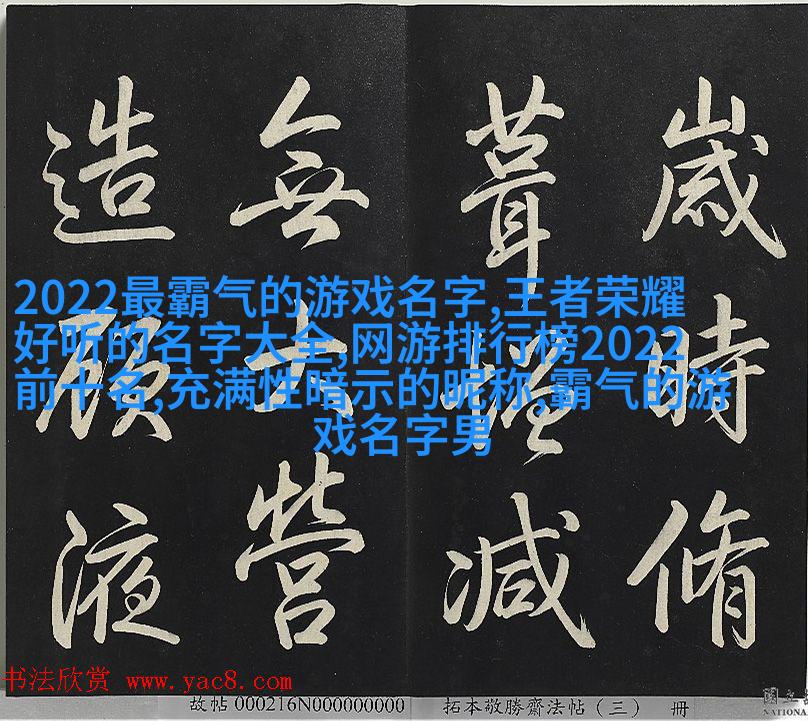 歲時脩
葺減
無營
造液
2022最霸气的游戏名字,王者荣耀
好听的名字大全,网游排行榜2022
前十名,充满性暗示的昵称,霸气的游
戏名字男
书法欣赏 www.yac8.com
故帖 000216N000000000 拓本敬勝齋法帖（三） 冊
國立
NATIONA